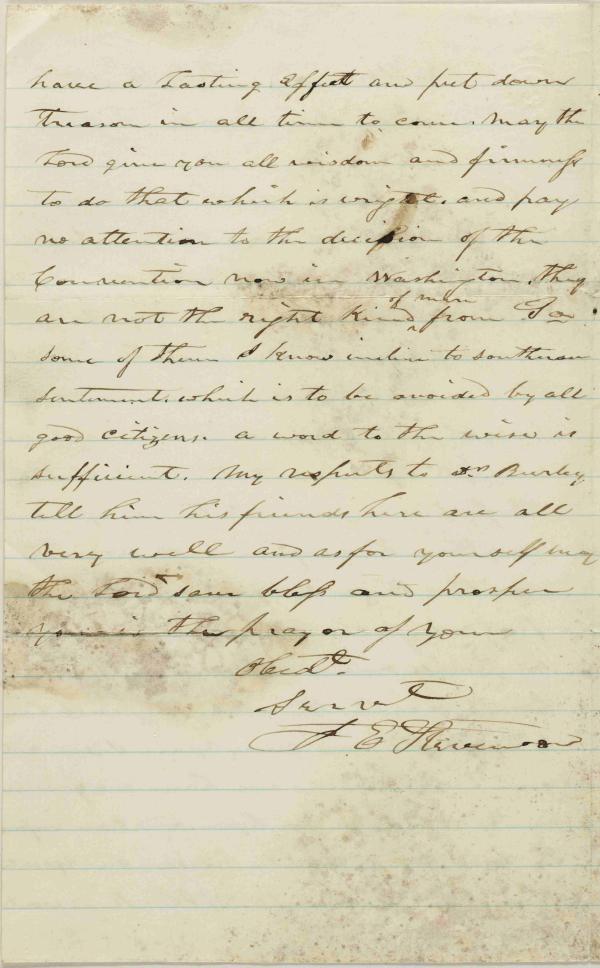 have a lasting effect and put down
treason in all time to come. May the
Lord give you all wisdom and firmness
to do that which is wright. and pay
no attention to the decision of the
Convention now in Washington. they
are not the right kind of men from
some of them I know incline to southern
sentiment. which is to be avoided by all
good citizens. a word to the wise is
sufficient. My respects to Burley.
tell him his friends here are all
very well and as for yourself may
the Lord save bless and prosper
you is the prayor of your
Obedt.
Servnt
E Stevenson